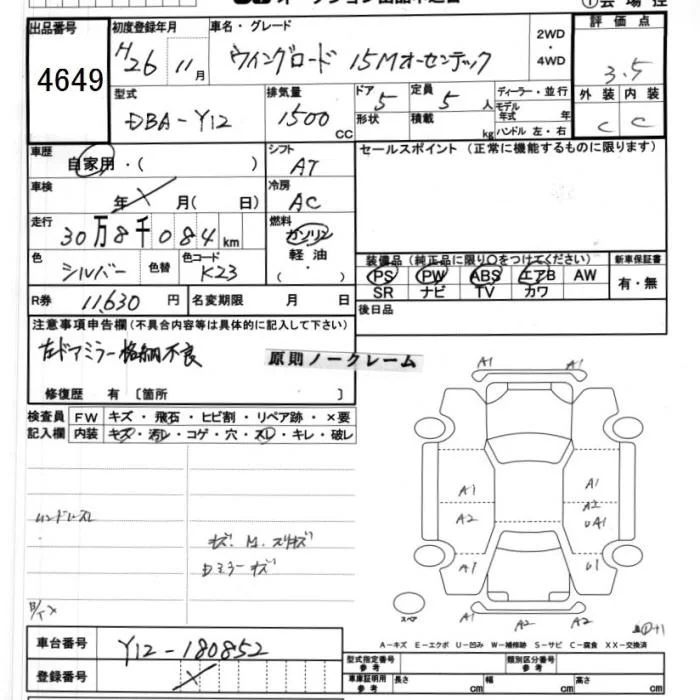 出品番号
4649
初度登録年月
H26 11月
車名・グレード
ウイングロード 15Mオーセンテック
2WD
・
4WD
評価点
3.5
外装 内装
C C
型式
DBA-Y12
排気量
1500 CC
ドア 5
形状
定員 5 人
積載 kg
ディーラー・並行
モデル年式 年
ハンドル 左・右
車歴
自家用・( )
シフト
AT
セールスポイント (正常に機能するものに限ります)
車検
年 月( 日)
冷房
AC
走行
30万8千084km
燃料
ガソリン
軽油
・( )
色
シルバー
色替
色コード
K23
装備品 (純正品に限り○をつけてください)
PS PW ABS エアB AW
SR ナビ TV カワ
新車保証書
有・無
R券 11,630 円
名変期限 月 日
後日品
注意事項申告欄 (不具合内容等は具体的に記入して下さい)
左ドアミラー格納不良
原則ノークレーム
修復歴 有 〔箇所 〕
検査員記入欄
FW キズ・飛石・ヒビ割・リペア跡・×要
内装 キズ・汚レ・コゲ・穴・スレ・キレ・破レ
ハンドルスレ
キズ. M. スリキズ
Dミラーキズ
A1 A1
A1 A1
A2 A2
UA1
A1 U1
スペア
A1 A2 A2
A-キズ E-エクボ U-凹み W-補修跡 S-サビ C-腐食 XX-交換済
車台番号 Y12-180852
登録番号
型式指定番号 参考
類別区分番号 参考
車庫証明用 参考 長さ cm 幅 cm 高さ cm